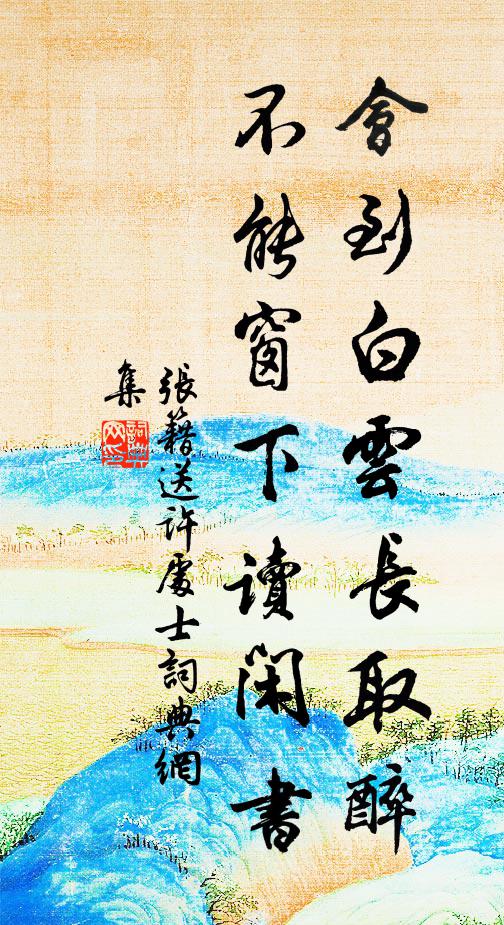 會到白雲長取醉
不能窗下讀閑書
張籍送許處士詞典網
集